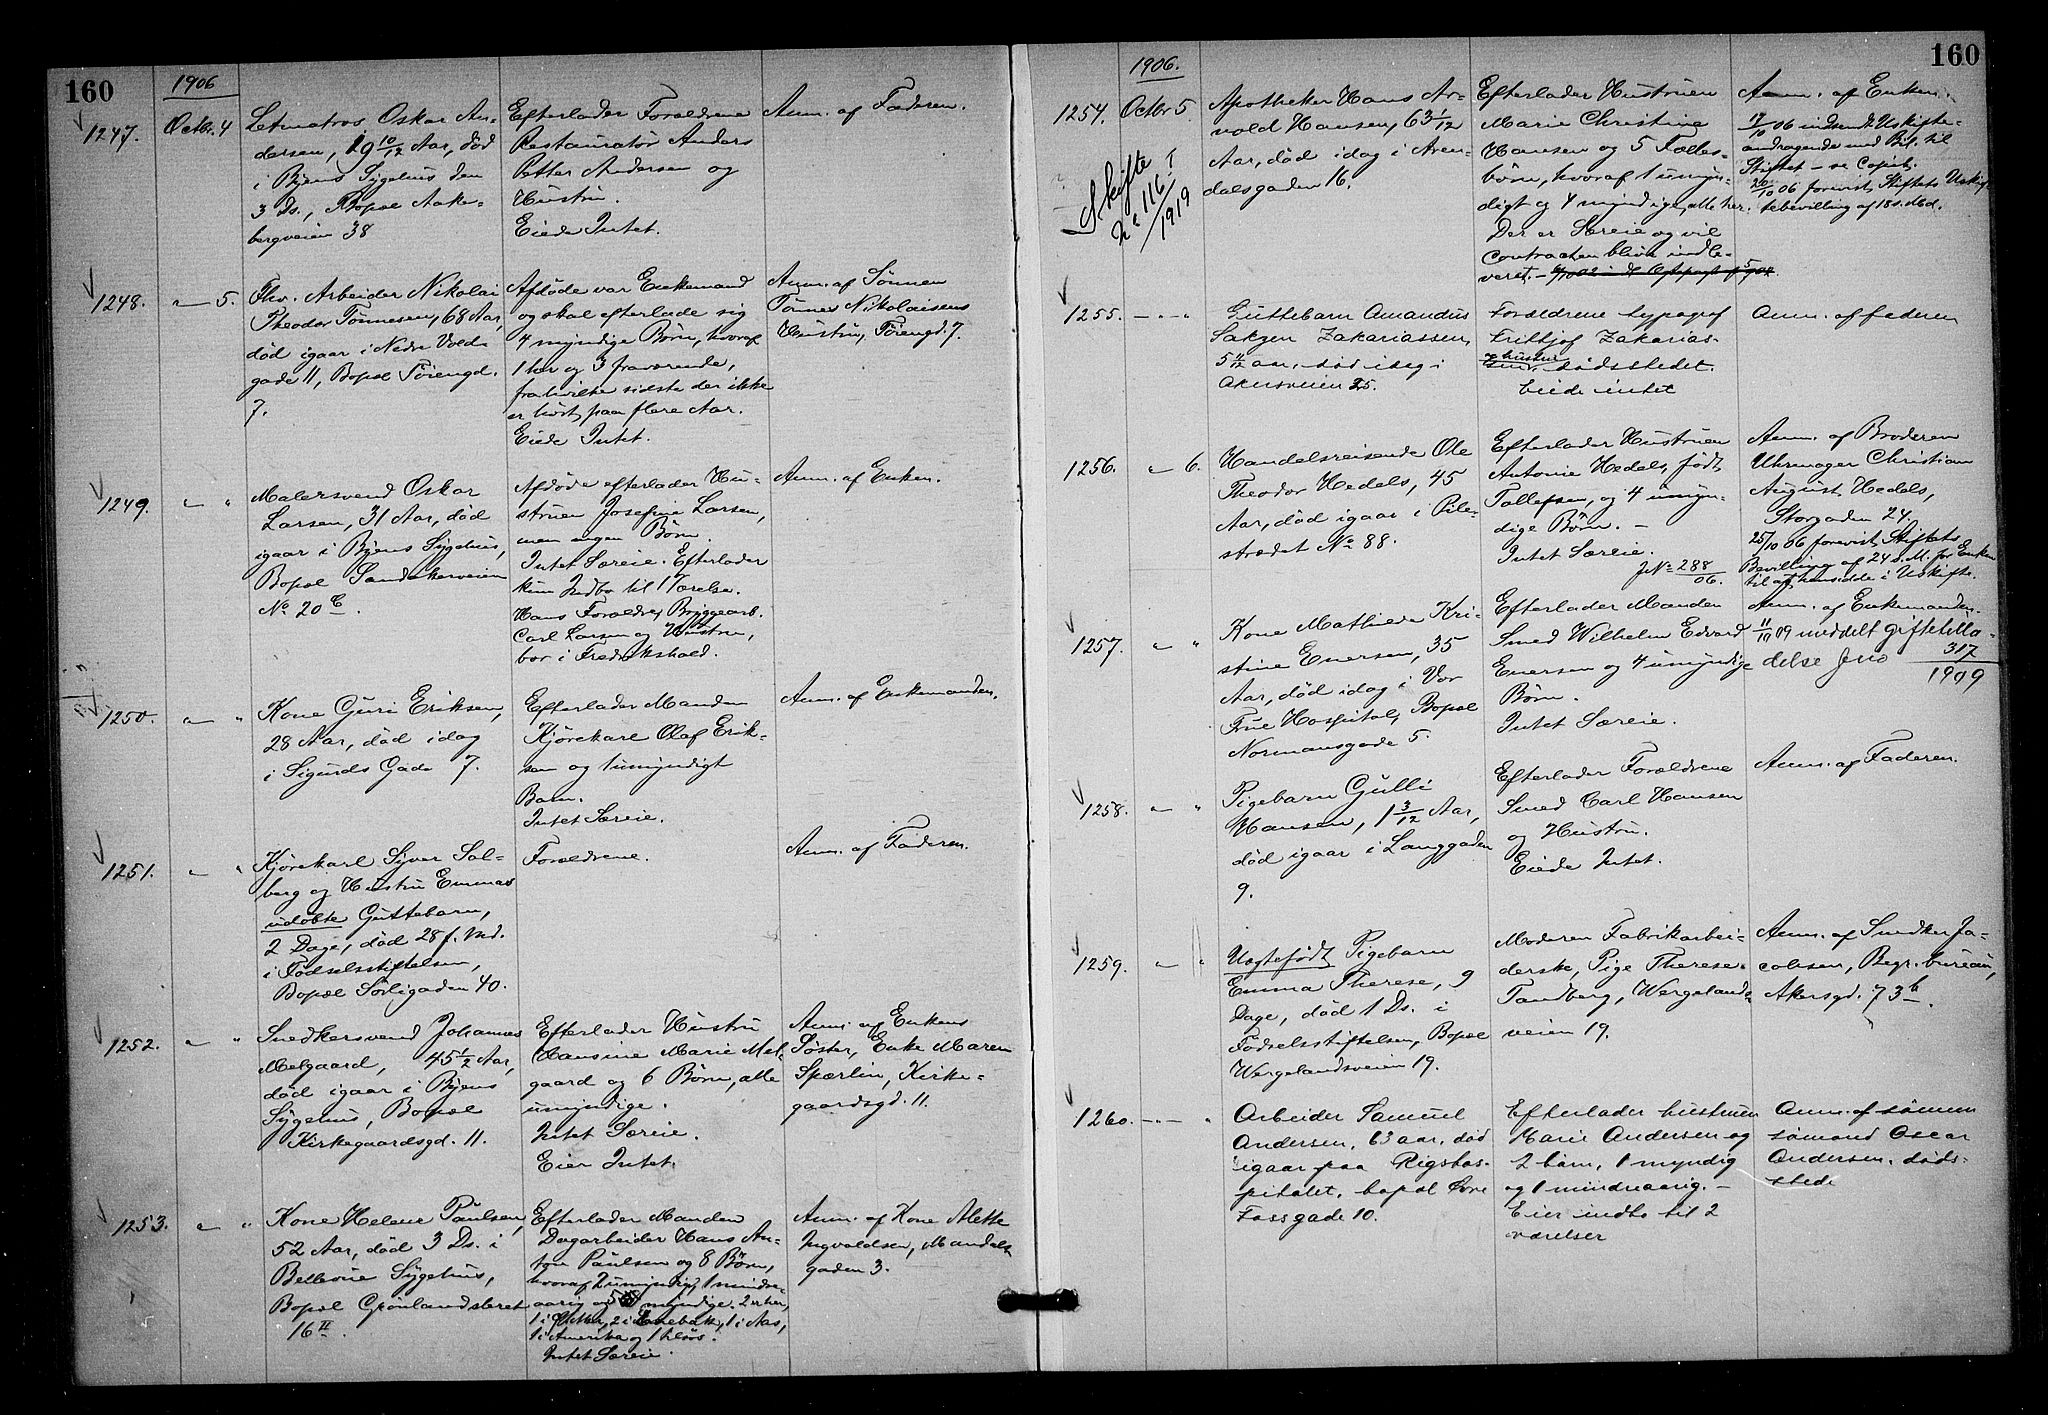 160
1906
1247.
Octbr. 4
Letmatros Oskar An-
dersen, 19 10/12 Aar, død
i Byens Sygehus den
3 Ds., Bopæl Aake-
bergveien 38
Efterlader Forældrene
Restauratør Anders
Petter Andersen og
Hustru.
Eiede Intet.
Anm. af Faderen.
1248.
" 5.
Fhv. Arbeider Nikolai
Theodor Tønnesen, 68 Aar,
død igaar i Nedre Vold-
gade 11, Bopæl Tøiengd.
7.
Afdøde var Enkemand
og skal efterlade sig
4 myndige Børn, hvoraf
1 her og 3 fraværende,
fra hvilke sidste der ikke
er hørt paa flere Aar.
Eiede Intet.
Anm. af Sønnen
Tønnes Nikolaisens
Hustru, Tøiengd. 7.
1249.
" "
Malersvend Oskar
Larsen, 31 Aar, død
igaar i Byens Sygehus,
Bopæl Sandakerveien
No. 20 C.
Afdøde efterlader Hu-
struen Josefine Larsen,
men ingen Børn.
Intet Særeie. Efterlader
kun Indbo til 1 Værelse.
Hans Forældre, Bryggearb.
Carl Larsen og Hustru,
bor i Fredrikshald.
Anm. af Enken.
1250.
" "
Kone Guri Eriksen,
28 Aar, død idag
i Sigurds Gade 7.
Efterlader Manden
Kjørekarl Olaf Erik-
sen og 1 umyndigt
Barn.
Intet Særeie.
Anm. af Enkemanden.
1251.
" "
Kjørekarl Syver Sol-
berg og Hustru Emmas
udøbte Guttebarn,
2 Dage, død 28 f. Md.
i Fødselsstiftelsen,
Bopæl Sørligaden 40.
Forældrene.
Anm. af Faderen.
1252.
" "
Snedkersvend Johannes
Melgaard, 45 1/2 Aar,
død igaar i Byens
Sygehus, Bopæl
Kirkegaardsgd. 11.
Efterlader Hustru
Hansine Marie Mel-
gaard og 6 Børn, alle
umyndige.
Intet Særeie.
Eier Intet.
Anm. af Enkens
Søster, Enke Maren
Spærlin, Kirke-
gaardsgd. 11.
1253.
" "
Kone Helene Paulsen,
52 Aar, død 3 Ds. i
Bellevue Sygehus,
Bopæl Grønlandsleret
16 II.
Efterlader Manden
Dagarbeider Hans An-
ton Paulsen og 8 Børn,
hvoraf 2 umyndig, 1 mindre-
aarig og 5 myndige. 2 er her,
2 i Enebak, 1 i Aas,
1 i Amerika og 1 tilsøs.
Intet Særeie.
Anm. af Kone Alette
Ingvaldsen, Mandals-
gaden 3.
160
1906.
1254.
Octbr 5.
Skifte !
No 116/1919
Apotheker Hans Ar-
vold Hansen, 63 3/12
Aar, død idag i Aren-
dalsgaden 16.
Efterlader Hustruen
Marie Christine
Hansen og 5 Fælles-
børn, hvoraf 1 umyn-
digt og 4 myndige, alle her.
Der er Særeie og vil
Contracten blive indle-
veret.
Anm. af Enken.
17/10 06 indsendt Uskifte-
andragende med Bil. til
Stiftet - se Copieb.
26/10 06 forevist Stiftets Uskif-
tebevilling af 18 s. Md.
1255.
- " - "
Guttebarn Amandus
Zakariassen,
5 11/12 aar, død idag i
Akersveien 25.
Forældrene typograf
Frithjof Zakarias-
sen og hustru, dødsstedet.
Eiede intet
Anm. af faderen
1256.
" 6.
Handelsreisende Ole
Theodor Hedels, 45
Aar, død igaar i Pile-
strædet No 88.
Efterlader Hustruen
Antonie Hedels, født
Tollefsen, og 4 umyn-
dige Børn. -
Intet Særeie.
J. No 288/06.
Anm. af Broderen
Uhrmager Christian
August Hedels,
Storgaden 24.
25/10 06 forevist Stiftets
Bevilling af 24 d. M. for Enken
til at hensidde i Uskifte.
1257.
" "
Kone Mathilde Kri-
stine Enersen, 35
Aar, død idag i Vor
Frue Hospital, Bopæl
Normansgade 5.
Efterlader Manden
Smed Wilhelm Edvard
Enersen og 4 umyndige
Børn.
Intet Særeie.
Anm. af Enkemanden.
11/10 09 meddelt giftetilla-
delse J No 317/1909
1258.
" "
Pigebarn Gulli
Hansen, 1 3/12 Aar,
død igaar i Langgaden
9.
Efterlader Forældrene
Smed Carl Hansen
og Hustru.
Eiede Intet.
Anm. af Faderen.
1259.
" "
Uægtefødt Pigebarn
Emma Therese, 9
Dage, død 1 Ds. i
Fødselsstiftelsen, Bopæl
Wergelandsveien 19.
Moderen Fabrikarbei-
derske, Pige Therese
Tandberg, Wergelands-
veien 19.
Anm. af Snedker Ja-
cobsen, Begr. bureau,
Akersgd. 73 b.
1260.
- " - "
Arbeider Samuel
Andersen, 63 aar, død
igaar paa Rigshos-
pitalet, bopæl Øvre
Fossgade 10.
Efterlader hustruen
Marie Andersen og
2 børn, 1 myndig
og 1 mindreaarig. -
Eier indbo til 2
værelser
Anm. af sønnen
sømand Oscar
Andersen, døds-
stede